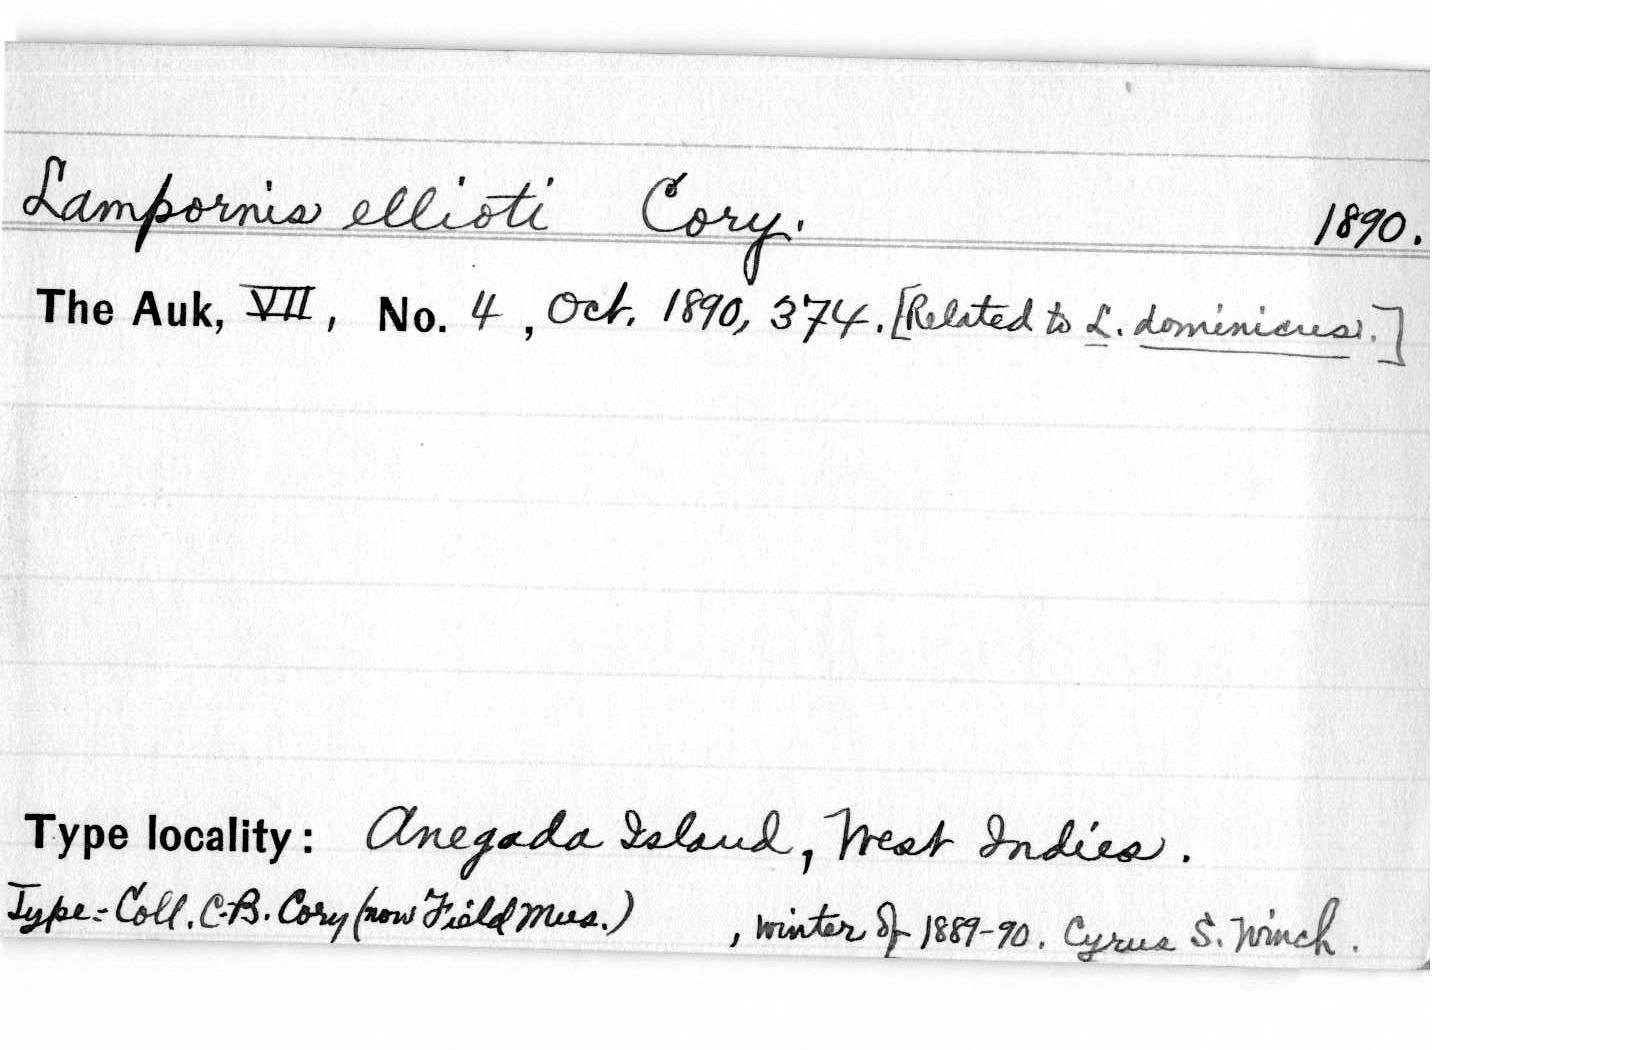 Lampornis ellioti Cory. 1890.
The Auk, VII, No. 4, Oct. 1890, 374. [Related to L. dominicus.]
Type locality: Anegada Island, West Indies.
Type = Coll. C.B. Cory (now Field Mus.) , winter of 1889-90. Cyrus S. Winch.